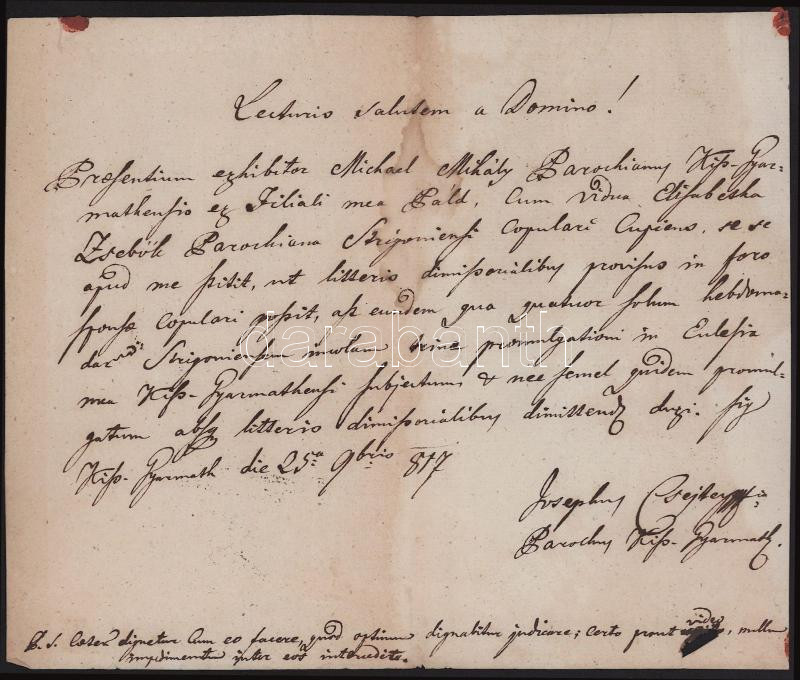 Lecturis salutem a Domino!
Præsentium exhibitor Michael Mihály Parochianus Kiss-Gyar-
mathensis ex Filiali mea Páld, Cum vidua Elisabetha
Zsebők Parochiana Strigoniensi Copulari Cupiens, se se
apud me stitit, ut litteris dimissorialibus provisus in foro
sponsæ copulari possit, ast eundem qua quatuor solum hebdoma-
dar Strigoniensem incolam trinæ promulgationi in Eclesia
mea Kiss-Gyarmathensi subjectum, & nec semel quidem promul-
gatum absq litteris dimissorialibus dimittend duxi. Sig
Kiss-Gyarmath die 25.a 9bris 817
Josephus
Parochus Kiss-Gyarmath.
P. S. dignetur Cum eo facere, quod optimum dignabitur judicare; certo prout video, nullum
impedimentum inter eos intercedit.
darabanth